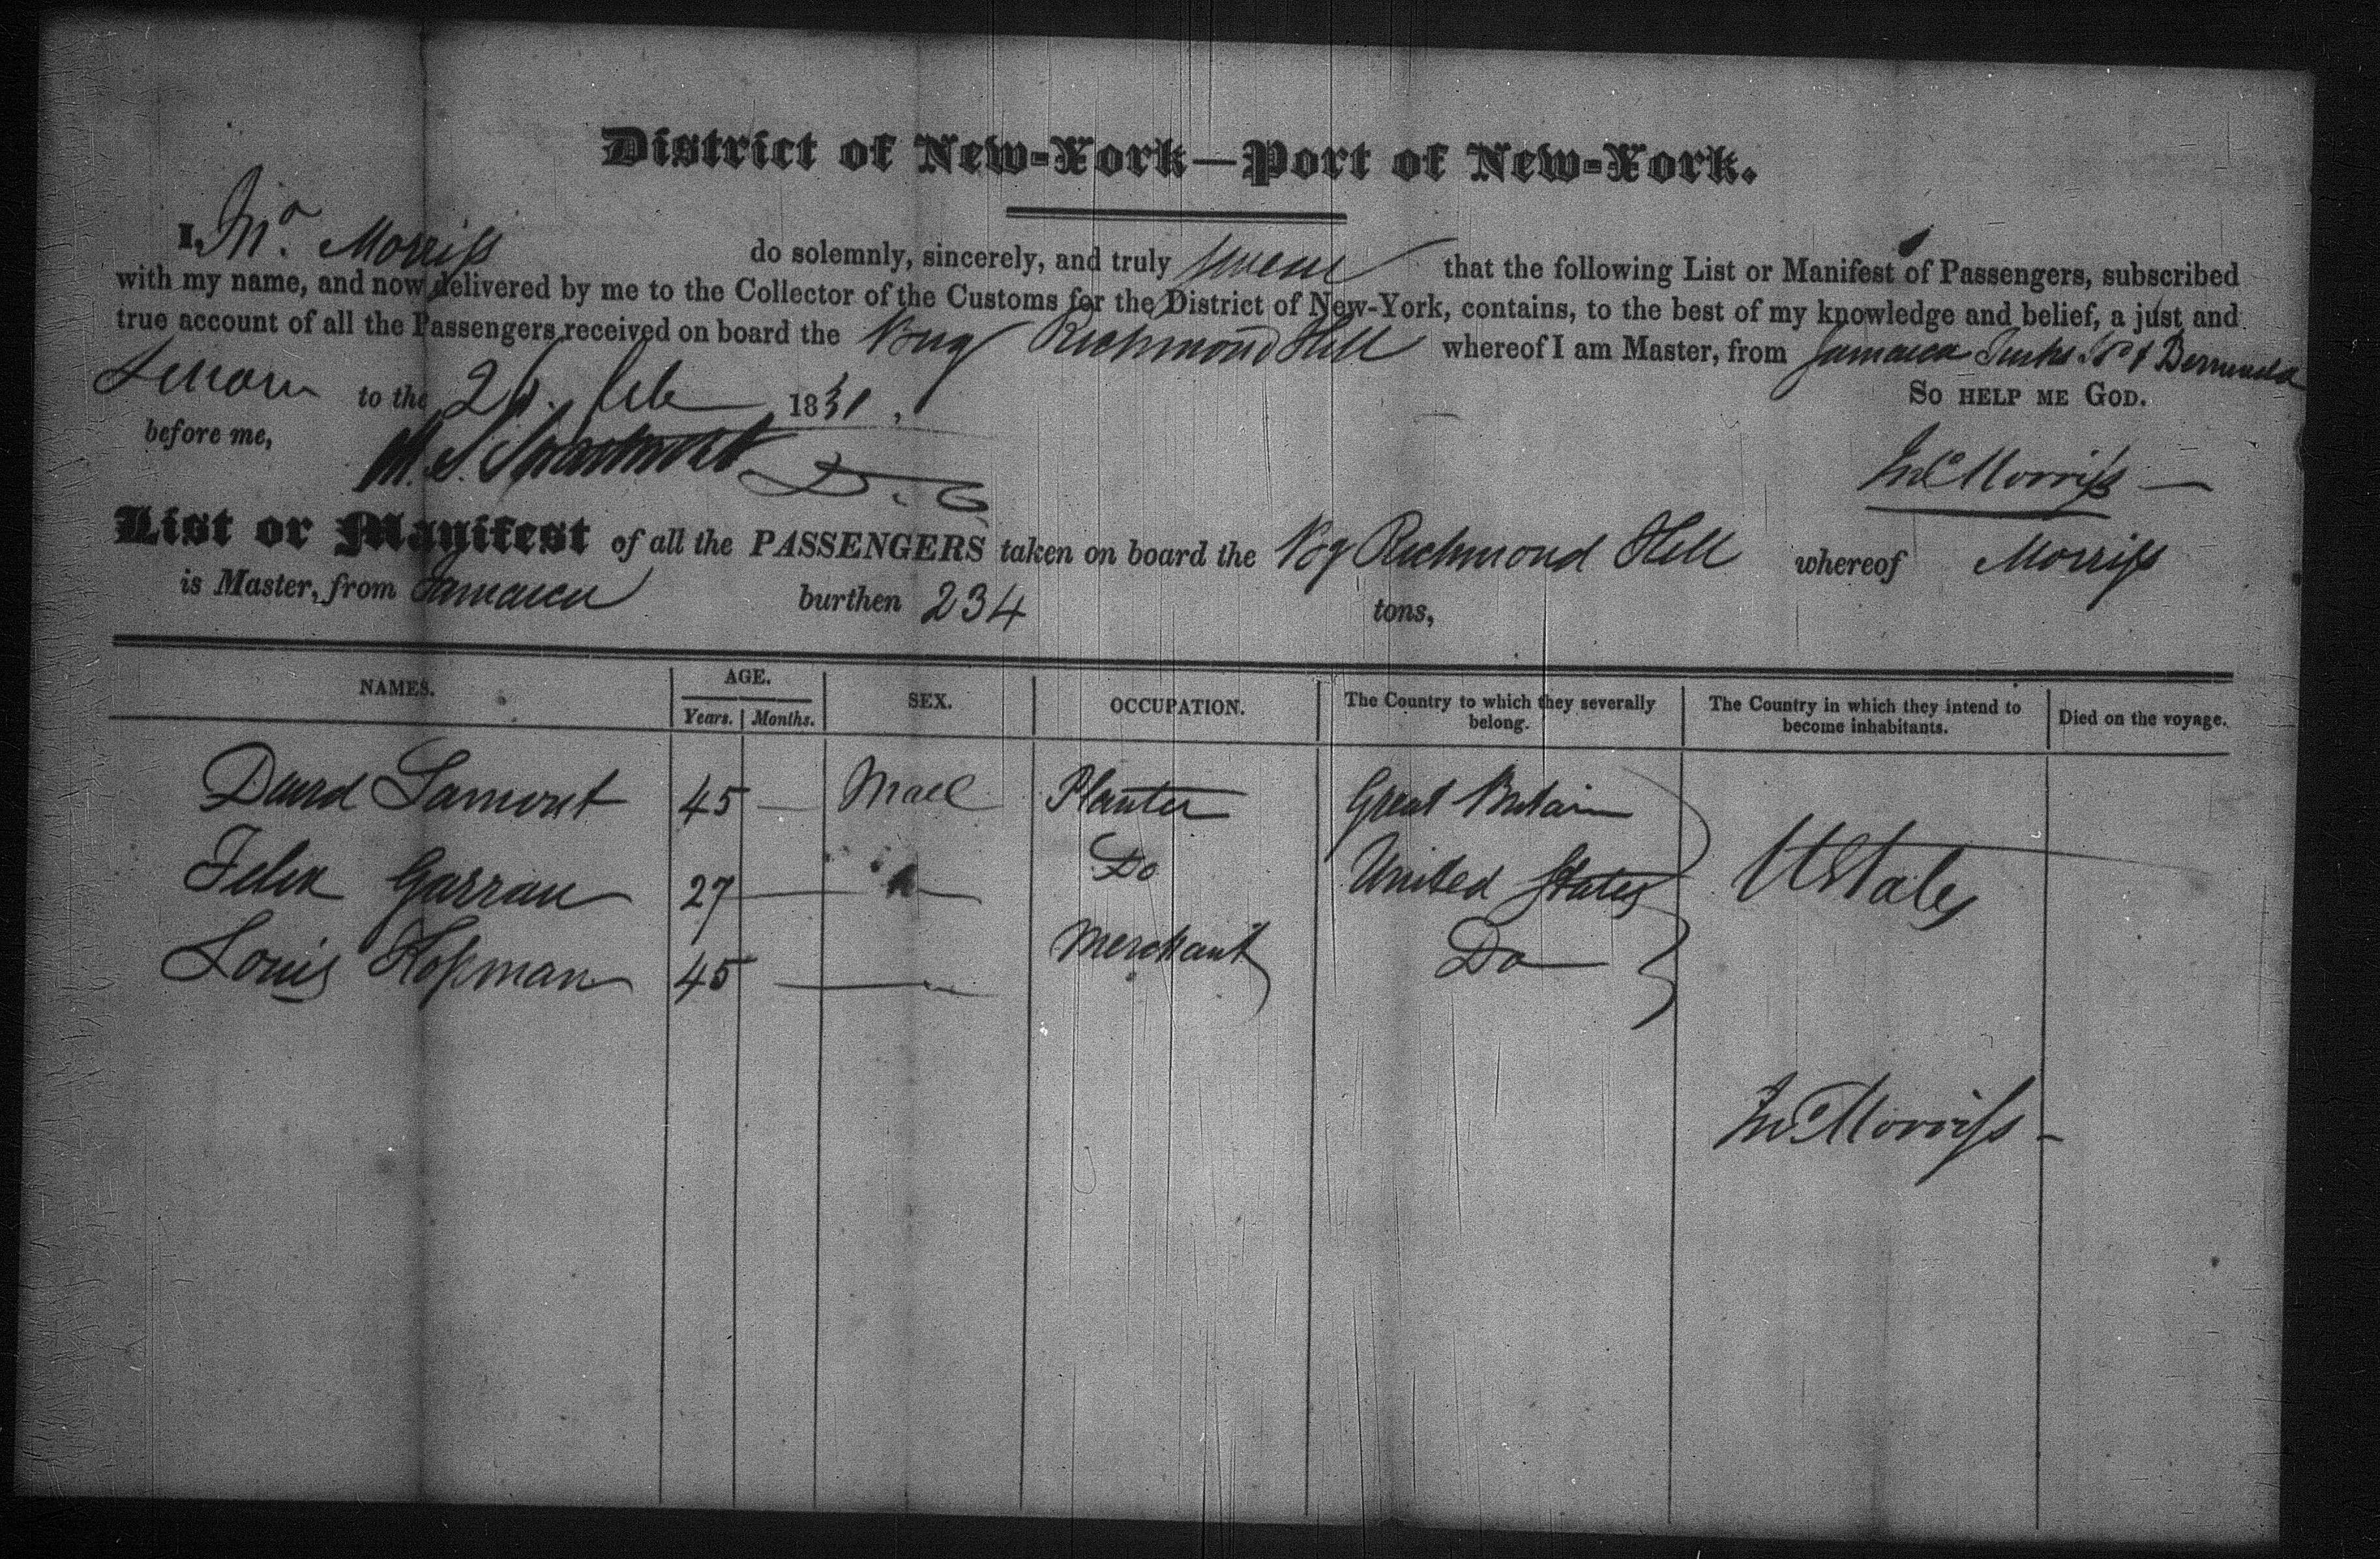 District of New-York—Port of New-York.
I, Jno. Morriss do solemnly, sincerely, and truly swear that the following List or Manifest of Passengers, subscribed
with my name, and now delivered by me to the Collector of the Customs for the District of New-York, contains, to the best of my knowledge and belief, a just and
true account of all the Passengers received on board the Brig Richmond Hill whereof I am Master, from Jamaica Turks & Bermuda
Sworn to the 26. Feb 1831. So HELP ME GOD.
before me, M. S. Swartwout D. C.
Jno Morriss
List or Manifest of all the PASSENGERS taken on board the Brg Richmond Hill whereof Morriss
is Master, from Jamaica burthen 234 tons,
NAMES. AGE. Years. Months. SEX. OCCUPATION. The Country to which they severally belong. The Country in which they intend to become inhabitants. Died on the voyage.
David Lamont 45 — Male Planter Great Britain
Felix Garrau 27 — " — Do United States UStates
Louis Hopman 45 — " — Merchant Do
Jno Morriss